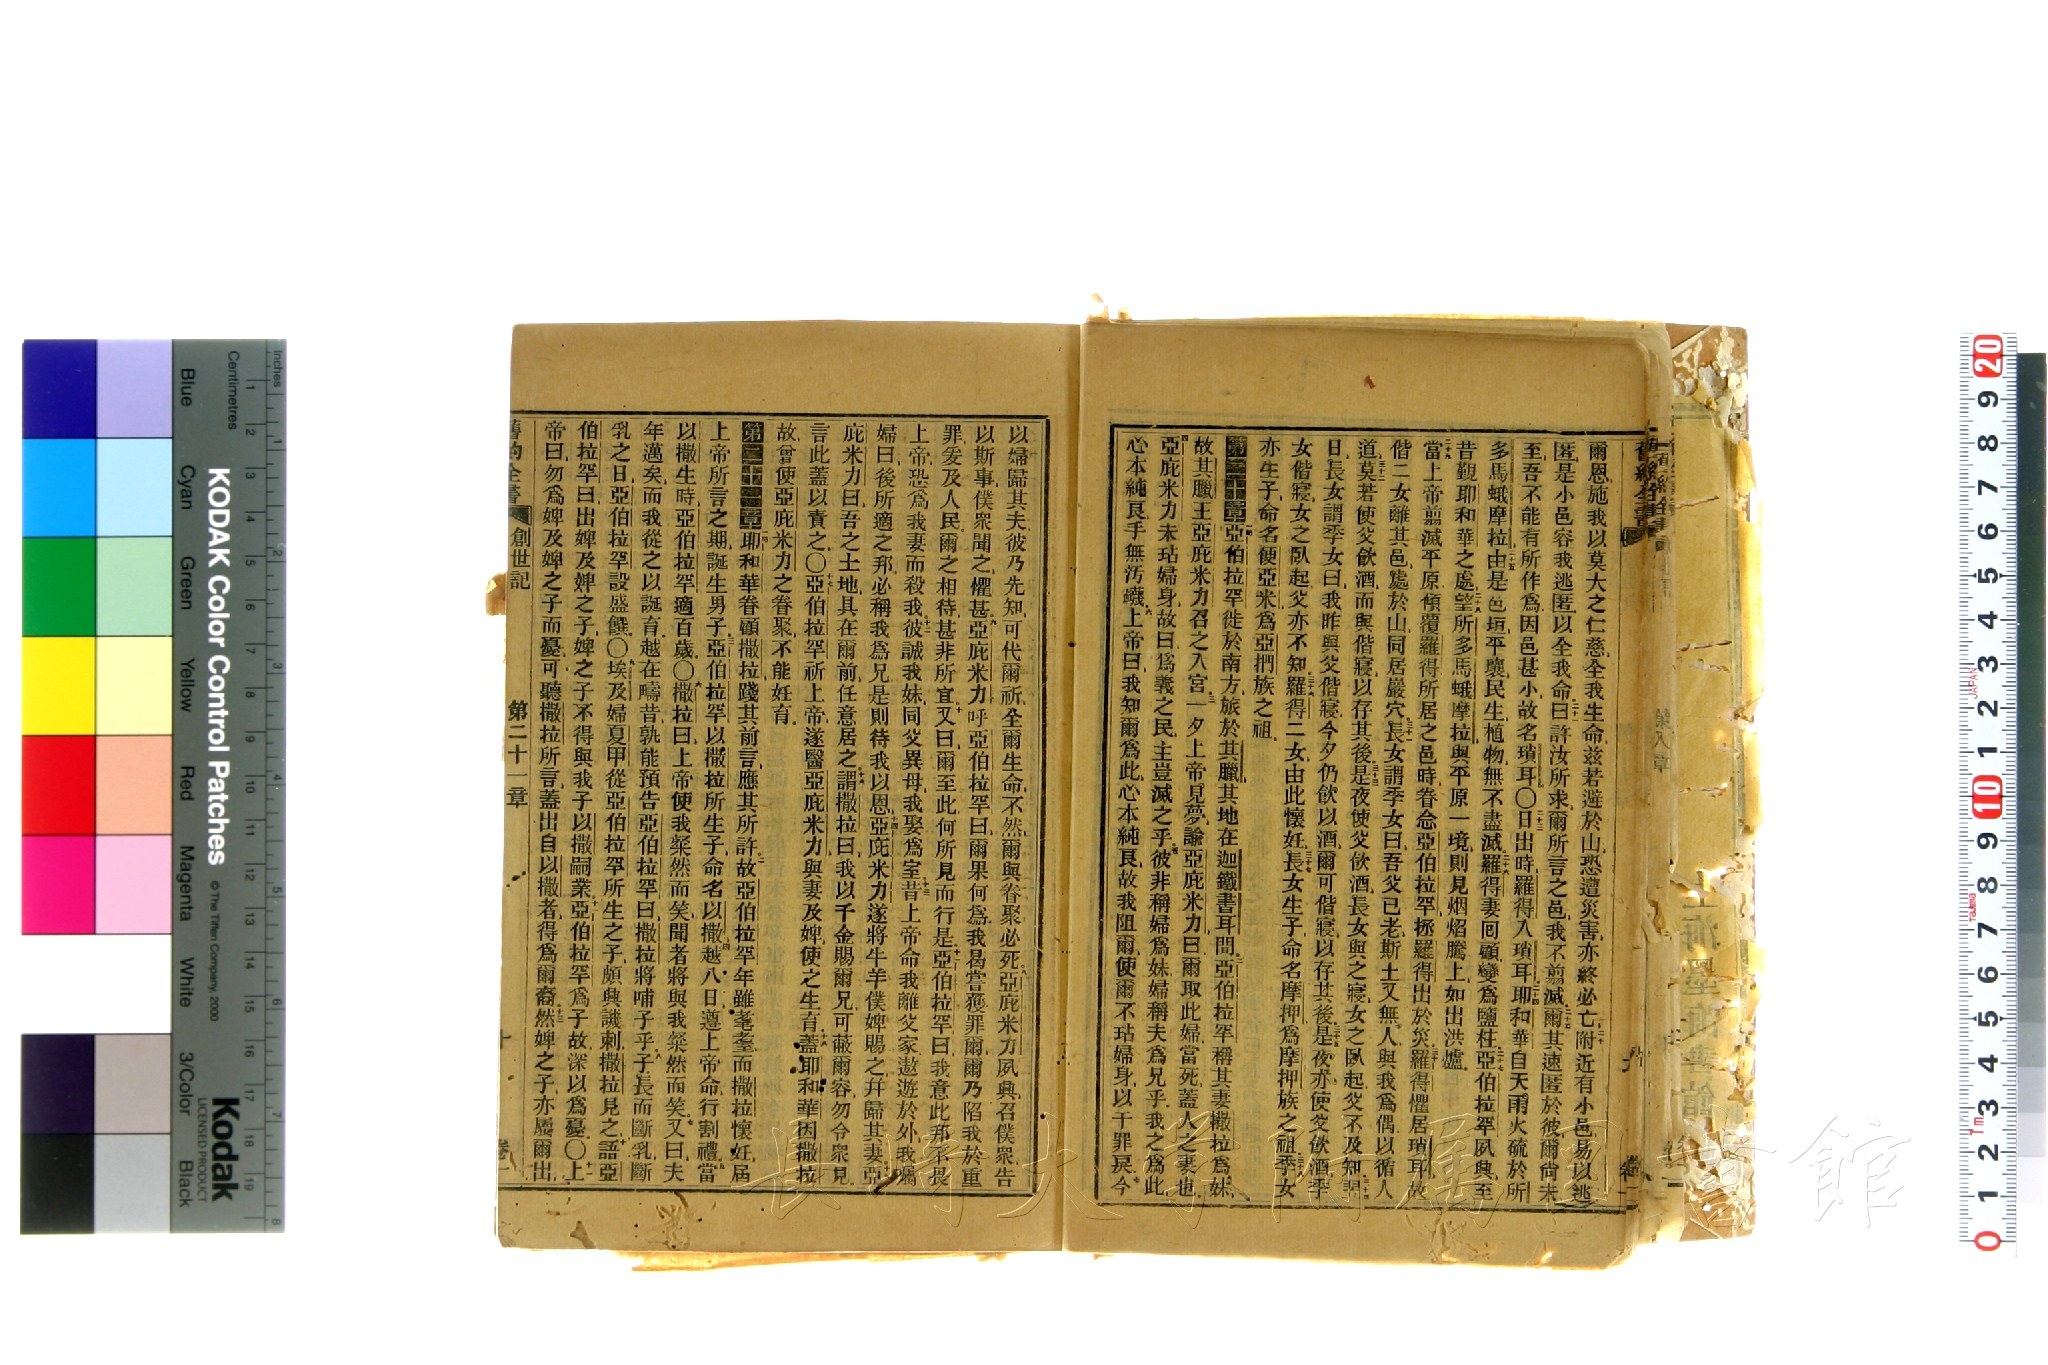 爾恩施我以莫大之仁慈全我生命兹若避於山恐遭災害亦終必亡附近有小邑易以逃
匿是小邑容我逃匿以全我命曰許汝所求爾所言之邑我不翦滅爾其速匿於彼爾尙未
至吾不能有所作爲因邑甚小故名瑣耳〇日出時羅得入瑣耳耶和華自天雨火硫於所
多馬蛾摩拉由是邑垣平壤民生植物無不盡滅羅得妻回顧變爲鹽柱亞伯拉罕夙興至
昔覲耶和華之處望所多馬蛾摩拉與平原一境則見烟焰騰上如出洪爐
當上帝翦滅平原傾覆羅得所居之邑時眷念亞伯拉罕拯羅得出於災羅得懼居瑣耳故
偕二女離其邑處於山同居巖穴長女謂季女曰吾父已老斯土又無人與我爲偶以循人
道莫若使父飲酒而與偕寢以存其後是夜使父飲酒長女與之寢女之臥起父不及知明
日長女謂季女曰我昨與父偕寢今夕仍飲以酒爾可偕寢以存其後是夜亦使父飲酒季
女偕寢女之臥起父亦不知羅得二女由此懷妊長女生子命名摩押爲摩押族之祖季女
亦生子命名便亞米爲亞捫族之祖
第二十章亞伯拉罕徙於南方旅於其臘其地在迦鐵書耳間亞伯拉罕稱其妻撒拉爲妹
故其臘王亞庇米力召之入宮一夕上帝見夢諭亞庇米力曰爾取此婦當死蓋人之妻也
亞庇米力未玷婦身故曰爲義之民主豈滅之乎彼非稱婦爲妹婦稱夫爲兄乎我之爲此
心本純良手無汚衊上帝曰我知爾爲此心本純良故我阻爾使爾不玷婦身以干罪戾今
以婦歸其夫彼乃先知可代爾祈全爾生命不然爾與眷聚必死亞庇米力夙興召僕衆告
以斯事僕衆聞之懼甚亞庇米力呼亞伯拉罕曰爾果何爲我曷嘗獲罪爾爾乃陷我於重
罪爰及人民爾之相待甚非所宜又曰爾至此何所見而行是亞伯拉罕曰我意此邦不畏
上帝恐爲我妻而殺我彼誠我妹同父異母我娶爲室昔上帝命我離父家遨遊於外我囑
婦曰後所適之邦必稱我爲兄是則待我以恩亞庇米力遂將牛羊僕婢賜之幷歸其妻亞
庇米力曰吾之土地具在爾前任意居之謂撒拉曰我以千金賜爾兄可蔽爾容勿令衆見
言此蓋以責之〇亞伯拉罕祈上帝遂醫亞庇米力與妻及婢使之生育蓋耶和華因撒拉
故曾使亞庇米力之眷聚不能妊育
第二十一章耶和華眷顧撒拉踐其前言應其所許故亞伯拉罕年雖耄耋而撒拉懷妊屆
上帝所言之期誕生男子亞伯拉罕以撒拉所生子命名以撒越八日遵上帝命行割禮當
以撒生時亞伯拉罕適百歲〇撒拉曰上帝使我粲然而笑聞者將與我粲然而笑又曰夫
年邁矣而我從之以誕育越在疇昔孰能預告亞伯拉罕曰撒拉將哺子乎子長而斷乳斷
乳之日亞伯拉罕設盛饌〇埃及婦夏甲從亞伯拉罕所生之子頗興譏刺撒拉見之語亞
伯拉罕曰出婢及婢之子婢之子不得與我子以撒嗣業亞伯拉罕爲子故深以爲憂〇上
帝曰勿爲婢及婢之子而憂可聽撒拉所言蓋出自以撒者得爲爾裔然婢之子亦屬爾出
舊約全書 創世記 第二十一章 十